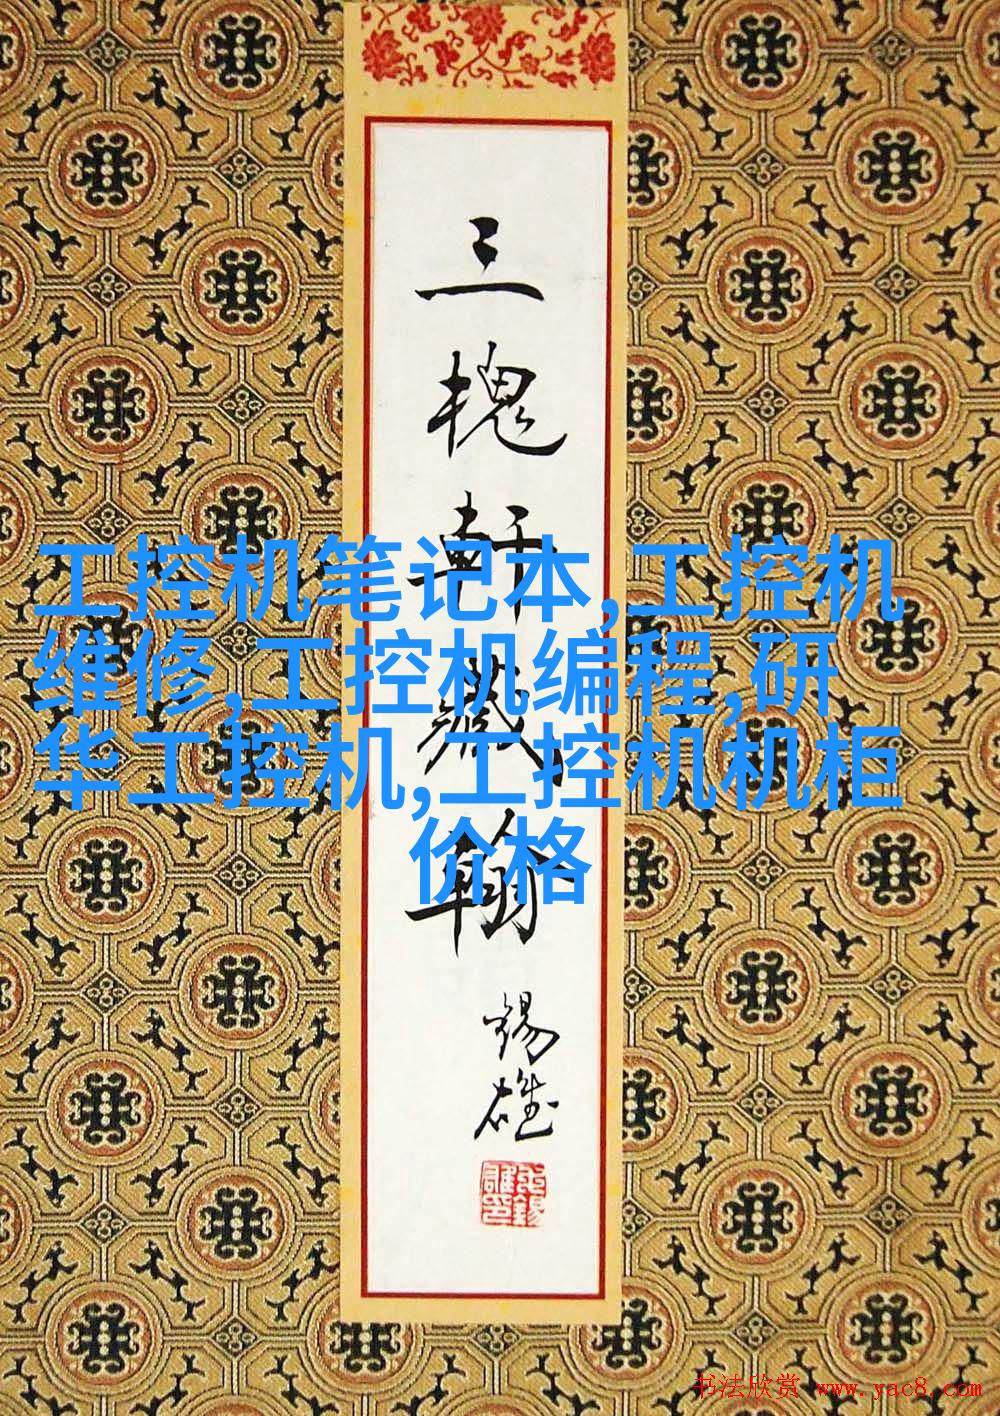 三槐軒藏翰
锡雄
工控机笔记本,工控机
维修,工控机编程,研
华工控机,工控机机柜
价格
书法欣赏 www.yac8.com